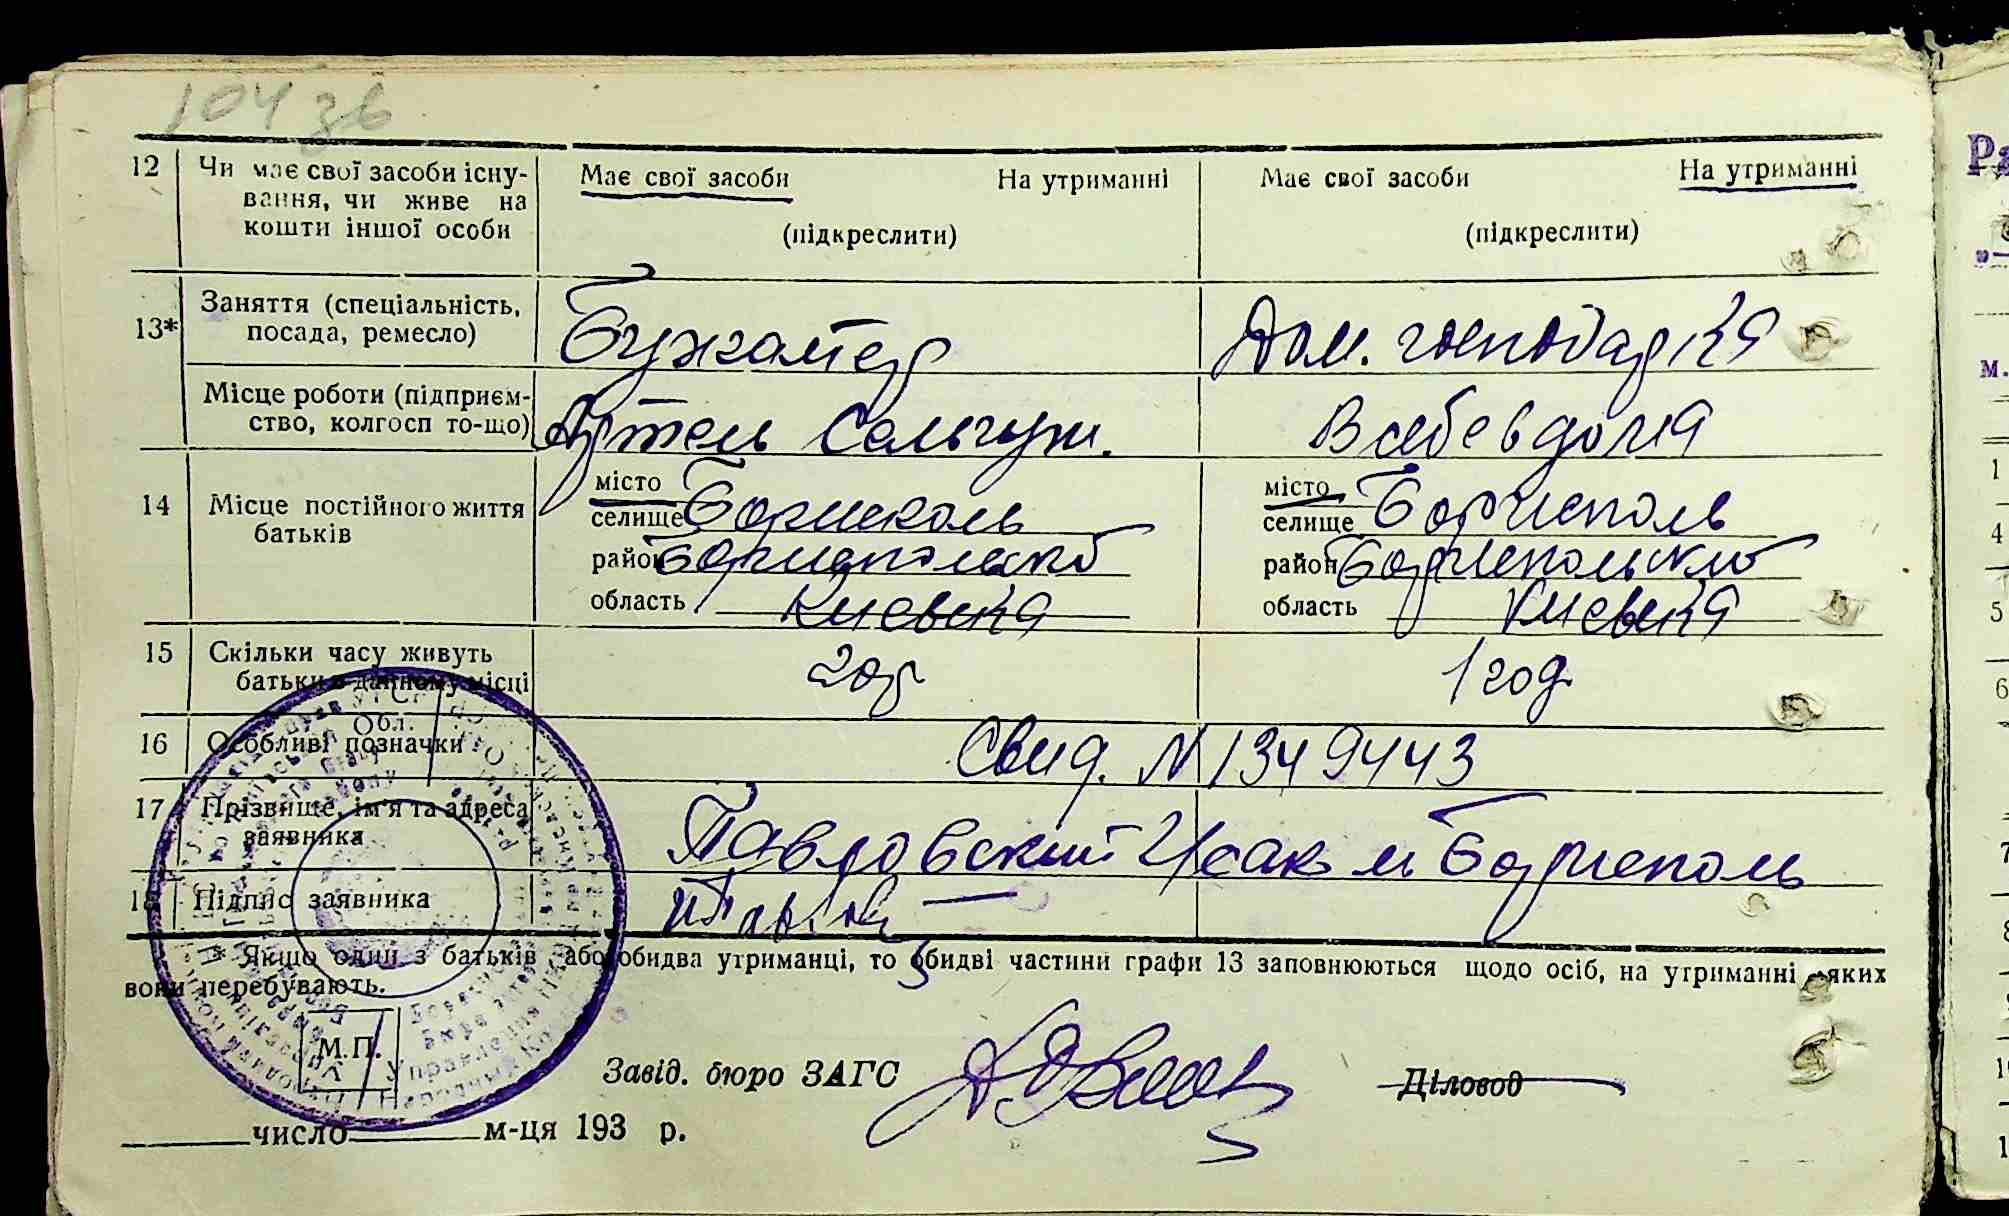 104 зв
12 Чи має свої засоби існування, чи живе на кошти іншої особи
Має свої засоби На утриманні
(підкреслити)
Має свої засоби На утриманні
(підкреслити)
13* Заняття (спеціальність, посада, ремесло)
Бухгалтер
Дом. господарка
Місце роботи (підприємство, колгосп то-що)
Артель
В себе вдома
14 Місце постійного життя батьків
місто
селище Бориспіль
район Бориспольско
область Киевска
місто
селище Борисполь
район Бориспольско
область Киевска
15 Скільки часу живуть батьки в данному місці
1 год
16 Особливі позначки
Свид. N 1349443
17 Прізвище, ім'я та адреса заявника
Павловский Исак м Борисполь
18 Підпис заявника
* Якщо один з батьків, або обидва утриманці, то обидві частини графи 13 заповнюються щодо осіб, на утриманні яких
вони перебувають.
М.П.
Завід. бюро ЗАГС
Діловод
число м-ця 193 р.